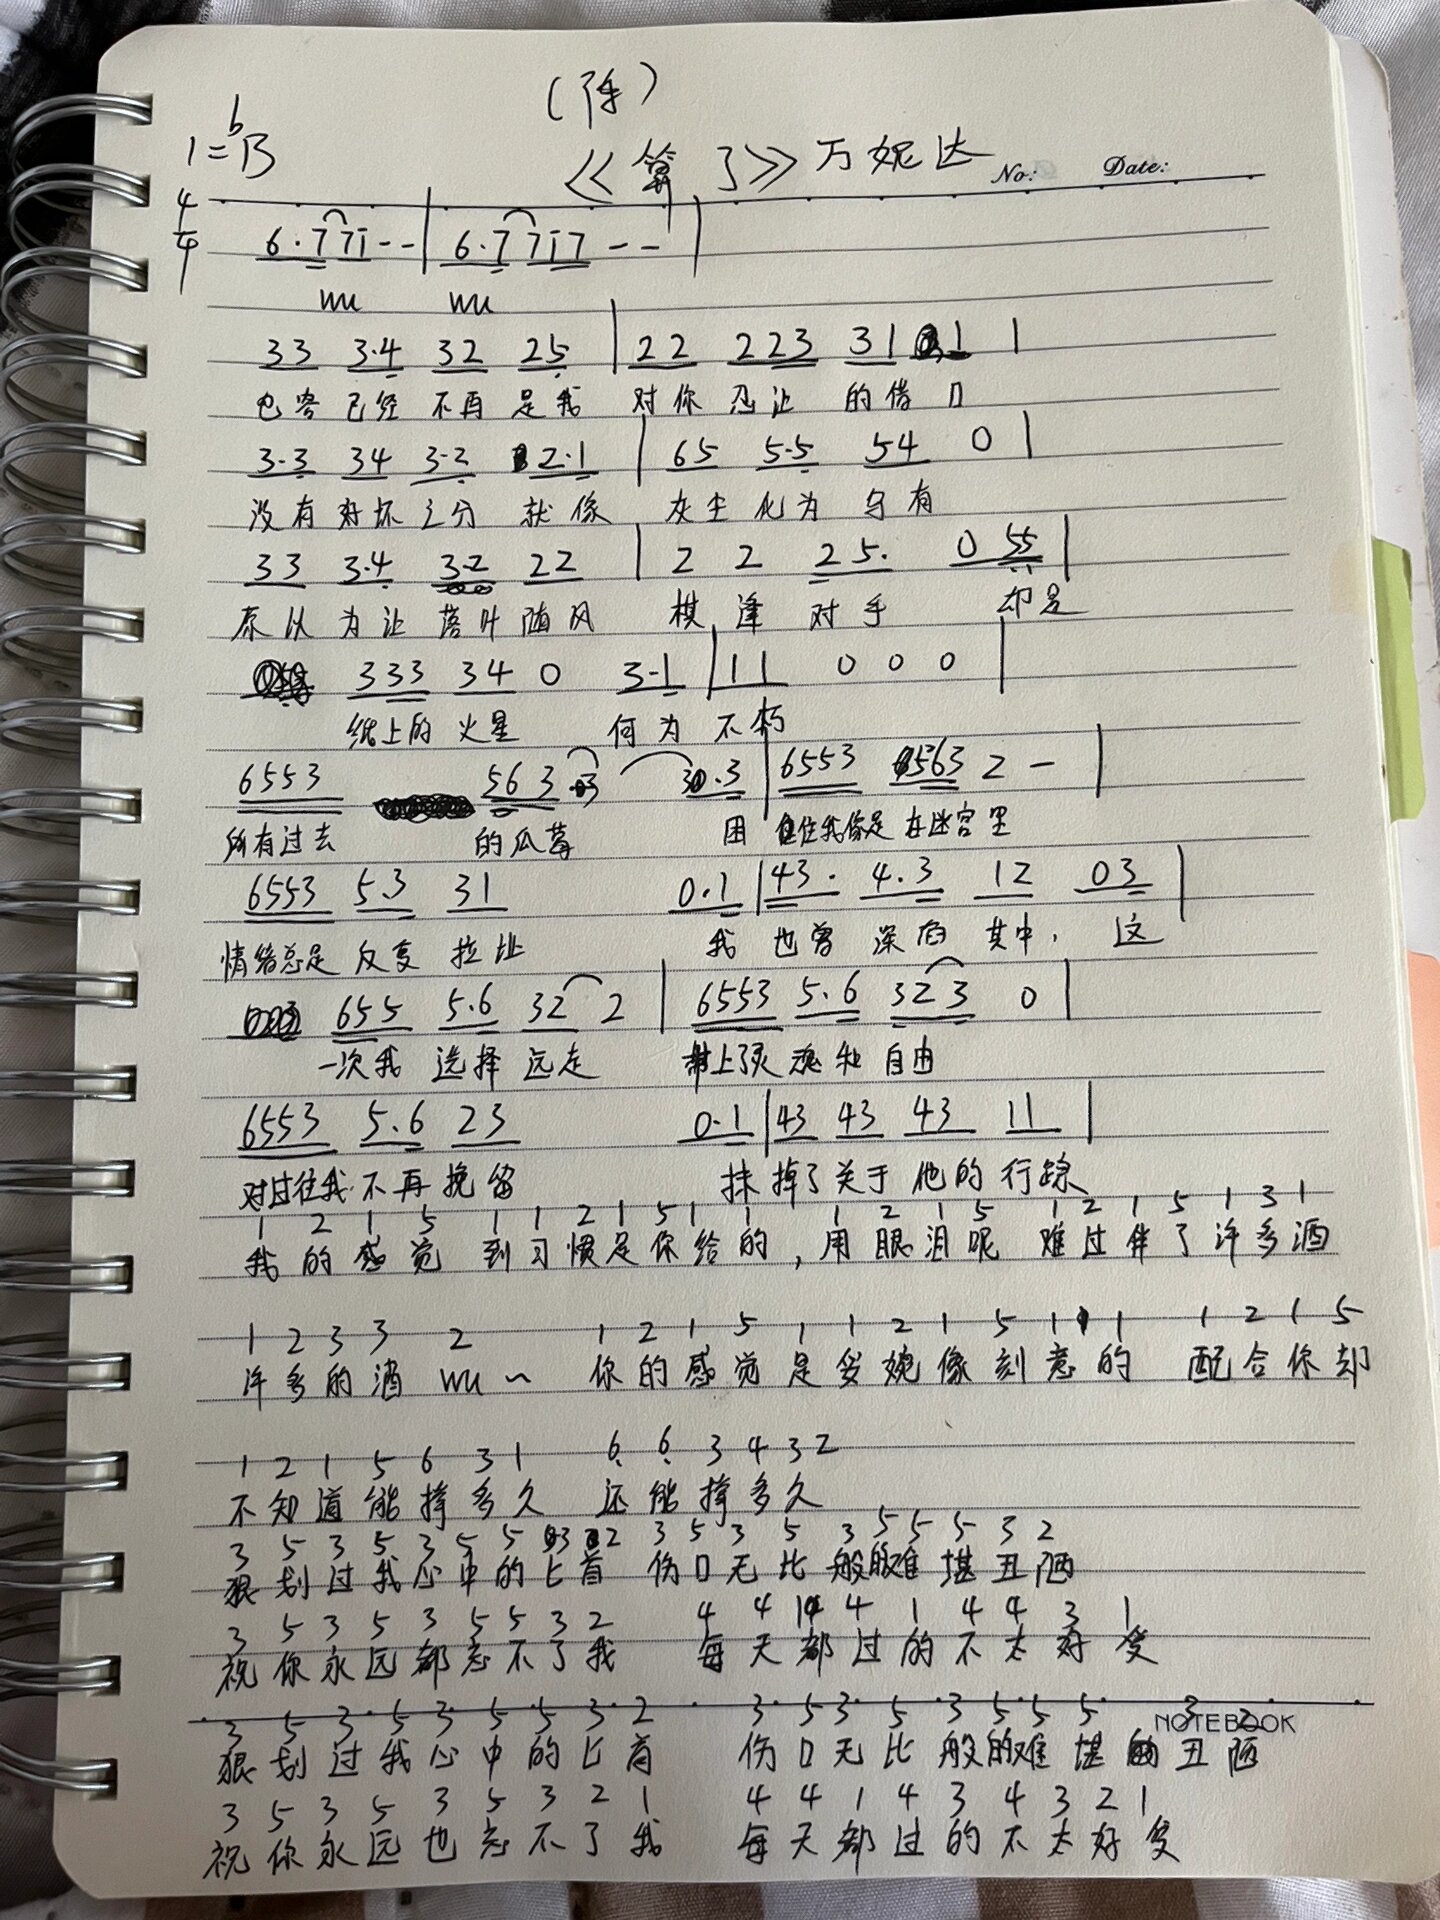 1=ᵇB
《算了》万妮达
No: Date:
4/4 6·7 7i - - | 6·7 7i7 - - |
wu wu
33 3·4 32 25 | 22 223 31 1 |
也许已经 不再 是我 对你 忍让 的借口
3·3 34 3·2 2·1 | 65 5·5 54 0 |
没有好坏之分 就像 灰尘 化为 乌有
33 3·4 3·2 22 | 2 2 25· 0 55 |
原以为让 落叶随风 棋逢对手 却是
333 34 0 3·1 | 11 0 0 0 |
纸上的 火星 何为 不朽
6553 563 3 ·3 | 6553 563 2 - |
所有过去 的瓜葛 困 住我像是 在迷宫里
6553 5·3 31 0·1 | 43· 4·3 12 03 |
情绪总是 反复 拉扯 我 也曾 深陷 其中, 这
655 5·6 32 2 | 6553 5·6 323 0 |
一次我 选择 远走 带上了灵魂和 自由
6553 5·6 23 0·1 | 43 43 43 11 |
对过往我 不再 挽留 抹 掉了关于 他的 行踪
1 2 1 5 1 1 2 1 5 1 1 1 2 1 5 1 2 1 5 1 3 1
我的感觉 到习惯是你给的,用眼泪呢 难过伴了许多酒
1 2 3 3 2 1 2 1 5 1 1 2 1 5 1 1 1 2 1 5
许多的酒 wu ~ 你的感觉是妥婉像刻意的 配合你却
1 2 1 5 6 3 1 6 6 3 4 3 2
不知道能撑多久 还能撑多久
3 5 3 5 3 5 5 3 2 3 5 3 5 3 5 5 5 3 2
狠划过我心中的匕首 伤口无比般的难堪丑陋
3 5 3 5 3 5 5 3 2 4 4 1 4 1 4 4 3 1
祝你永远都忘不了我 每天都过的不太好受
3 5 3 5 3 5 5 3 2 3 5 3 5 3 5 5 5 3 2
NOTEBOOK
狠划过我心中的匕首 伤口无比般的难堪丑陋
3 5 3 5 3 5 3 2 1 4 4 1 4 3 4 3 2 1
祝你永远也忘不了我 每天都过的不太好受